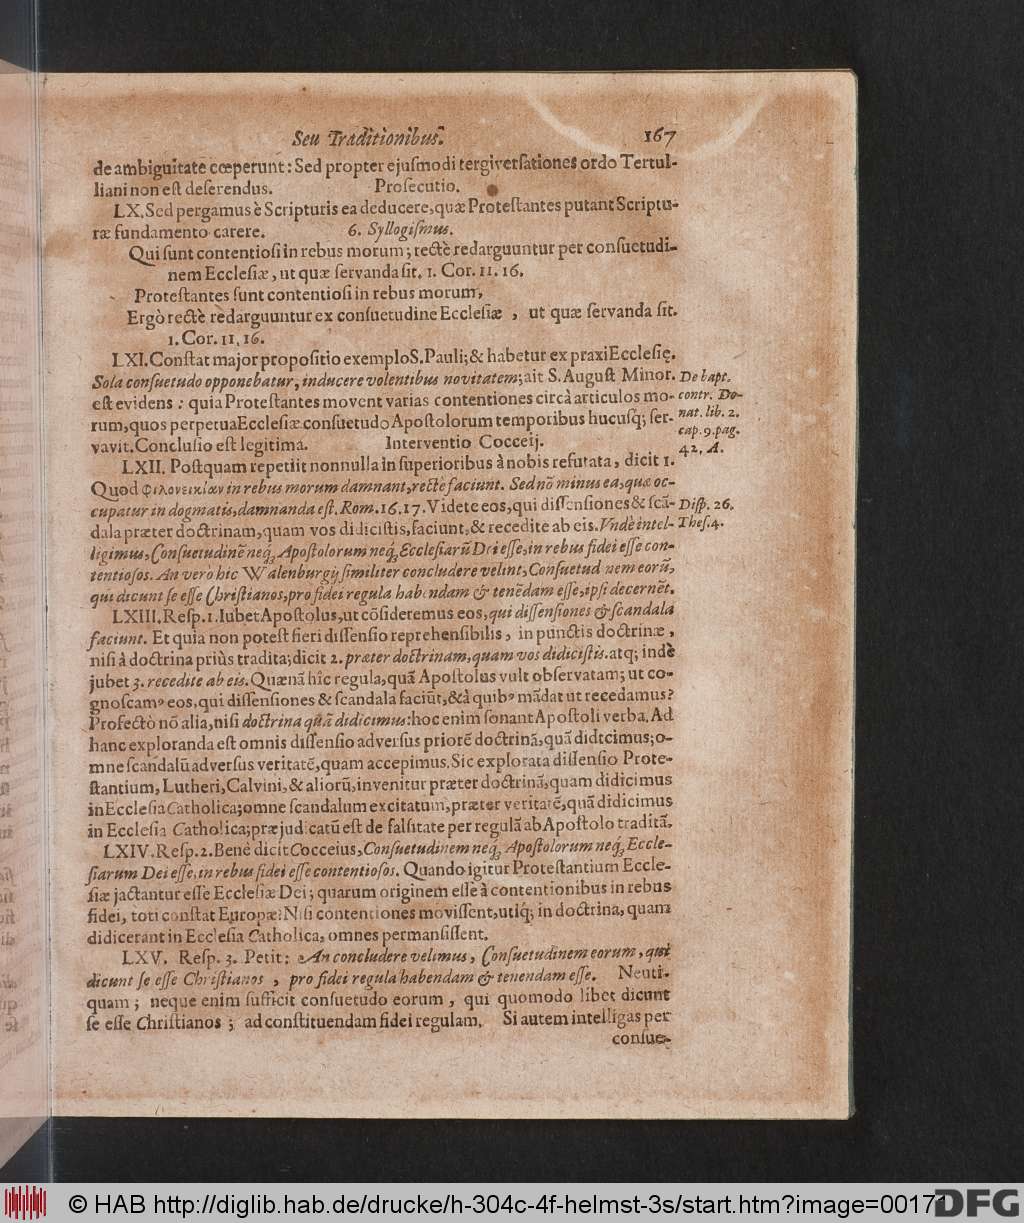 Seu Traditionibus. 167
de ambiguitate cœperunt: Sed propter ejuſmodi tergiverſationes ordo Tertul-
liani non eſt deſerendus. Proſecutio.
LX. Sed pergamus è Scripturis ea deducere, quæ Proteſtantes putant Scriptu-
ræ fundamento carere. 6. Syllogiſmus.
Qui ſunt contentioſi in rebus morum; rectè redarguuntur per conſuetudi-
nem Eccleſiæ, ut quæ ſervanda ſit. 1. Cor. 11. 16.
Proteſtantes ſunt contentioſi in rebus morum,
Ergò rectè redarguuntur ex conſuetudine Eccleſiæ, ut quæ ſervanda ſit.
1. Cor. 11, 16.
LXI. Conſtat major propoſitio exemplo S. Pauli; & habetur ex praxi Eccleſię.
Sola conſuetudo opponebatur, inducere volentibus novitatem; ait S. Auguſt Minor. De bapt.
eſt evidens: quia Proteſtantes movent varias contentiones circà articulos mo- contr. Do-
rum, quos perpetua Eccleſiæ conſuetudo Apoſtolorum temporibus hucuſq; ſer- nat. lib. 2.
vavit. Concluſio eſt legitima. Interventio Cocceij. cap. 9. pag.
42. A.
LXII. Poſtquam repetiit nonnulla in ſuperioribus à nobis refutata, dicit 1.
Quod φιλονεικίαν in rebus morum damnant, rectè faciunt. Sed nō minus ea, quæ oc-
cupatur in dogmatis, damnanda eſt. Rom. 16. 17. Videte eos, qui diſſenſiones & ſcā- Diſp. 26.
dala præter doctrinam, quam vos didiciſtis, faciunt, & recedite ab eis. Vndè intel- Theſ. 4.
ligimus, Conſuetudinē neq; Apoſtolorum neq; Eccleſiarū Dei eſſe, in rebus fidei eſſe con-
tentioſos. An verò hic Walenburgij ſimiliter concludere velint, Conſuetudinem eorū,
qui dicunt ſe eſſe Chriſtianos, pro fidei regula habendam & tenēdam eſſe, ipſi decernēt.
LXIII. Reſp. 1. Iubet Apoſtolus, ut cōſideremus eos, qui diſſenſiones & ſcandala
faciunt. Et quia non poteſt fieri diſſenſio reprehenſibilis, in punctis doctrinæ,
niſi à doctrina priùs tradita; dicit 2. præter doctrinam, quam vos didiciſtis. atq; indè
jubet 3. recedite ab eis. Quænā hîc regula, quā Apoſtolus vult obſervatam; ut co-
gnoſcamꝰ eos, qui diſſenſiones & ſcandala faciūt, & à quibꝰ mādat ut recedamus?
Profectò nō alia, niſi doctrina quā didicimus: hoc enim ſonant Apoſtoli verba. Ad
hanc exploranda eſt omnis diſſenſio adverſus priorē doctrinā, quā didicimus; o-
mne ſcandalū adverſus veritatē, quam accepimus. Sic explorata diſſenſio Prote-
ſtantium, Lutheri, Calvini, & aliorū, invenitur præter doctrinā, quam didicimus
in Eccleſia Catholica; omne ſcandalum excitatum, præter veritatē, quā didicimus
in Eccleſia Catholica; præjudicatū eſt de falſitate per regulā ab Apoſtolo traditā.
LXIV. Reſp. 2. Benè dicit Cocceius, Conſuetudinem neq; Apoſtolorum neq; Eccle-
ſiarum Dei eſſe, in rebus fidei eſſe contentioſos. Quando igitur Proteſtantium Eccle-
ſiæ jactantur eſſe Eccleſiæ Dei; quarum originem eſſe à contentionibus in rebus
fidei, toti conſtat Europæ? Niſi contentiones moviſſent, utiq; in doctrina, quam
didicerant in Eccleſia Catholica, omnes permanſiſſent.
LXV. Reſp. 3. Petit: An concludere velimus, Conſuetudinem eorum, qui
dicunt ſe eſſe Chriſtianos, pro fidei regula habendam & tenendam eſſe. Neuti-
quam; neque enim ſufficit conſuetudo eorum, qui quomodo libet dicunt
ſe eſſe Chriſtianos; ad conſtituendam fidei regulam. Si autem intelligas per
conſue-
© HAB http://diglib.hab.de/drucke/h-304c-4f-helmst-3s/start.htm?image=00171
DFG